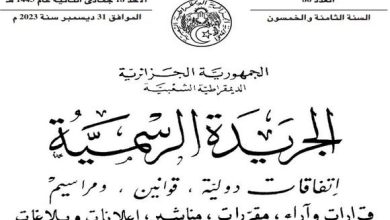 الأحد 18 جمادى الثانية عام 1445 هـ
العدد 86
الموافق 31 ديسمبر سنة 2023 م
السنة الثامنة والخمسون
الجمهورية الجزائرية
الديمقراطية الشعبية
الجريدة الرسمية
إتفاقات دولية ، قوانين ، ومراسيم
قرارات وآراء ، مقررات ، مناشير ، إعلانات وبلاغات